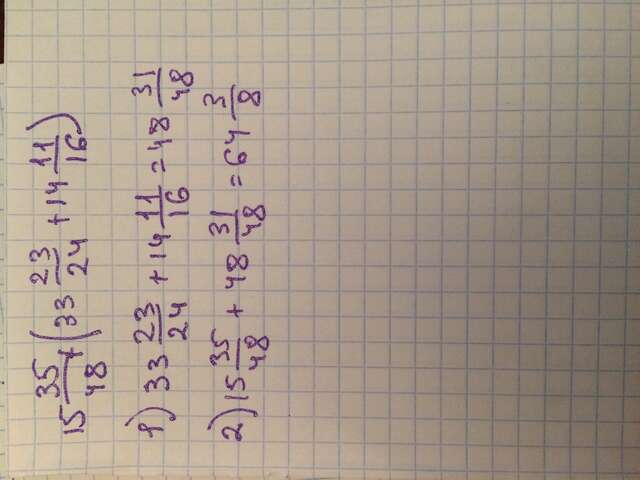 15 35/48 + (33 23/24 + 14 11/16)
1) 33 23/24 + 14 11/16 = 48 31/48
2) 15 35/48 + 48 31/48 = 64 3/8